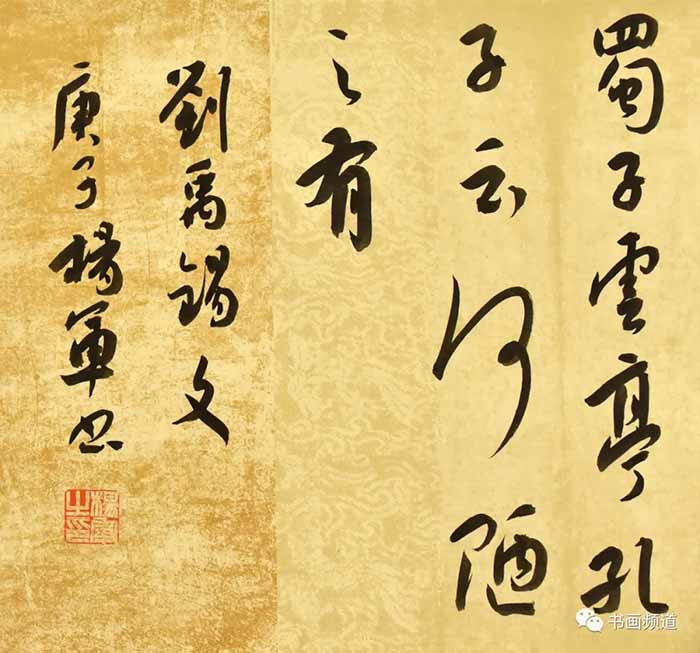 蜀子雲亭孔
子云何陋
之有
劉禹錫文
庚子楊軍书
楊軍之印
书画频道